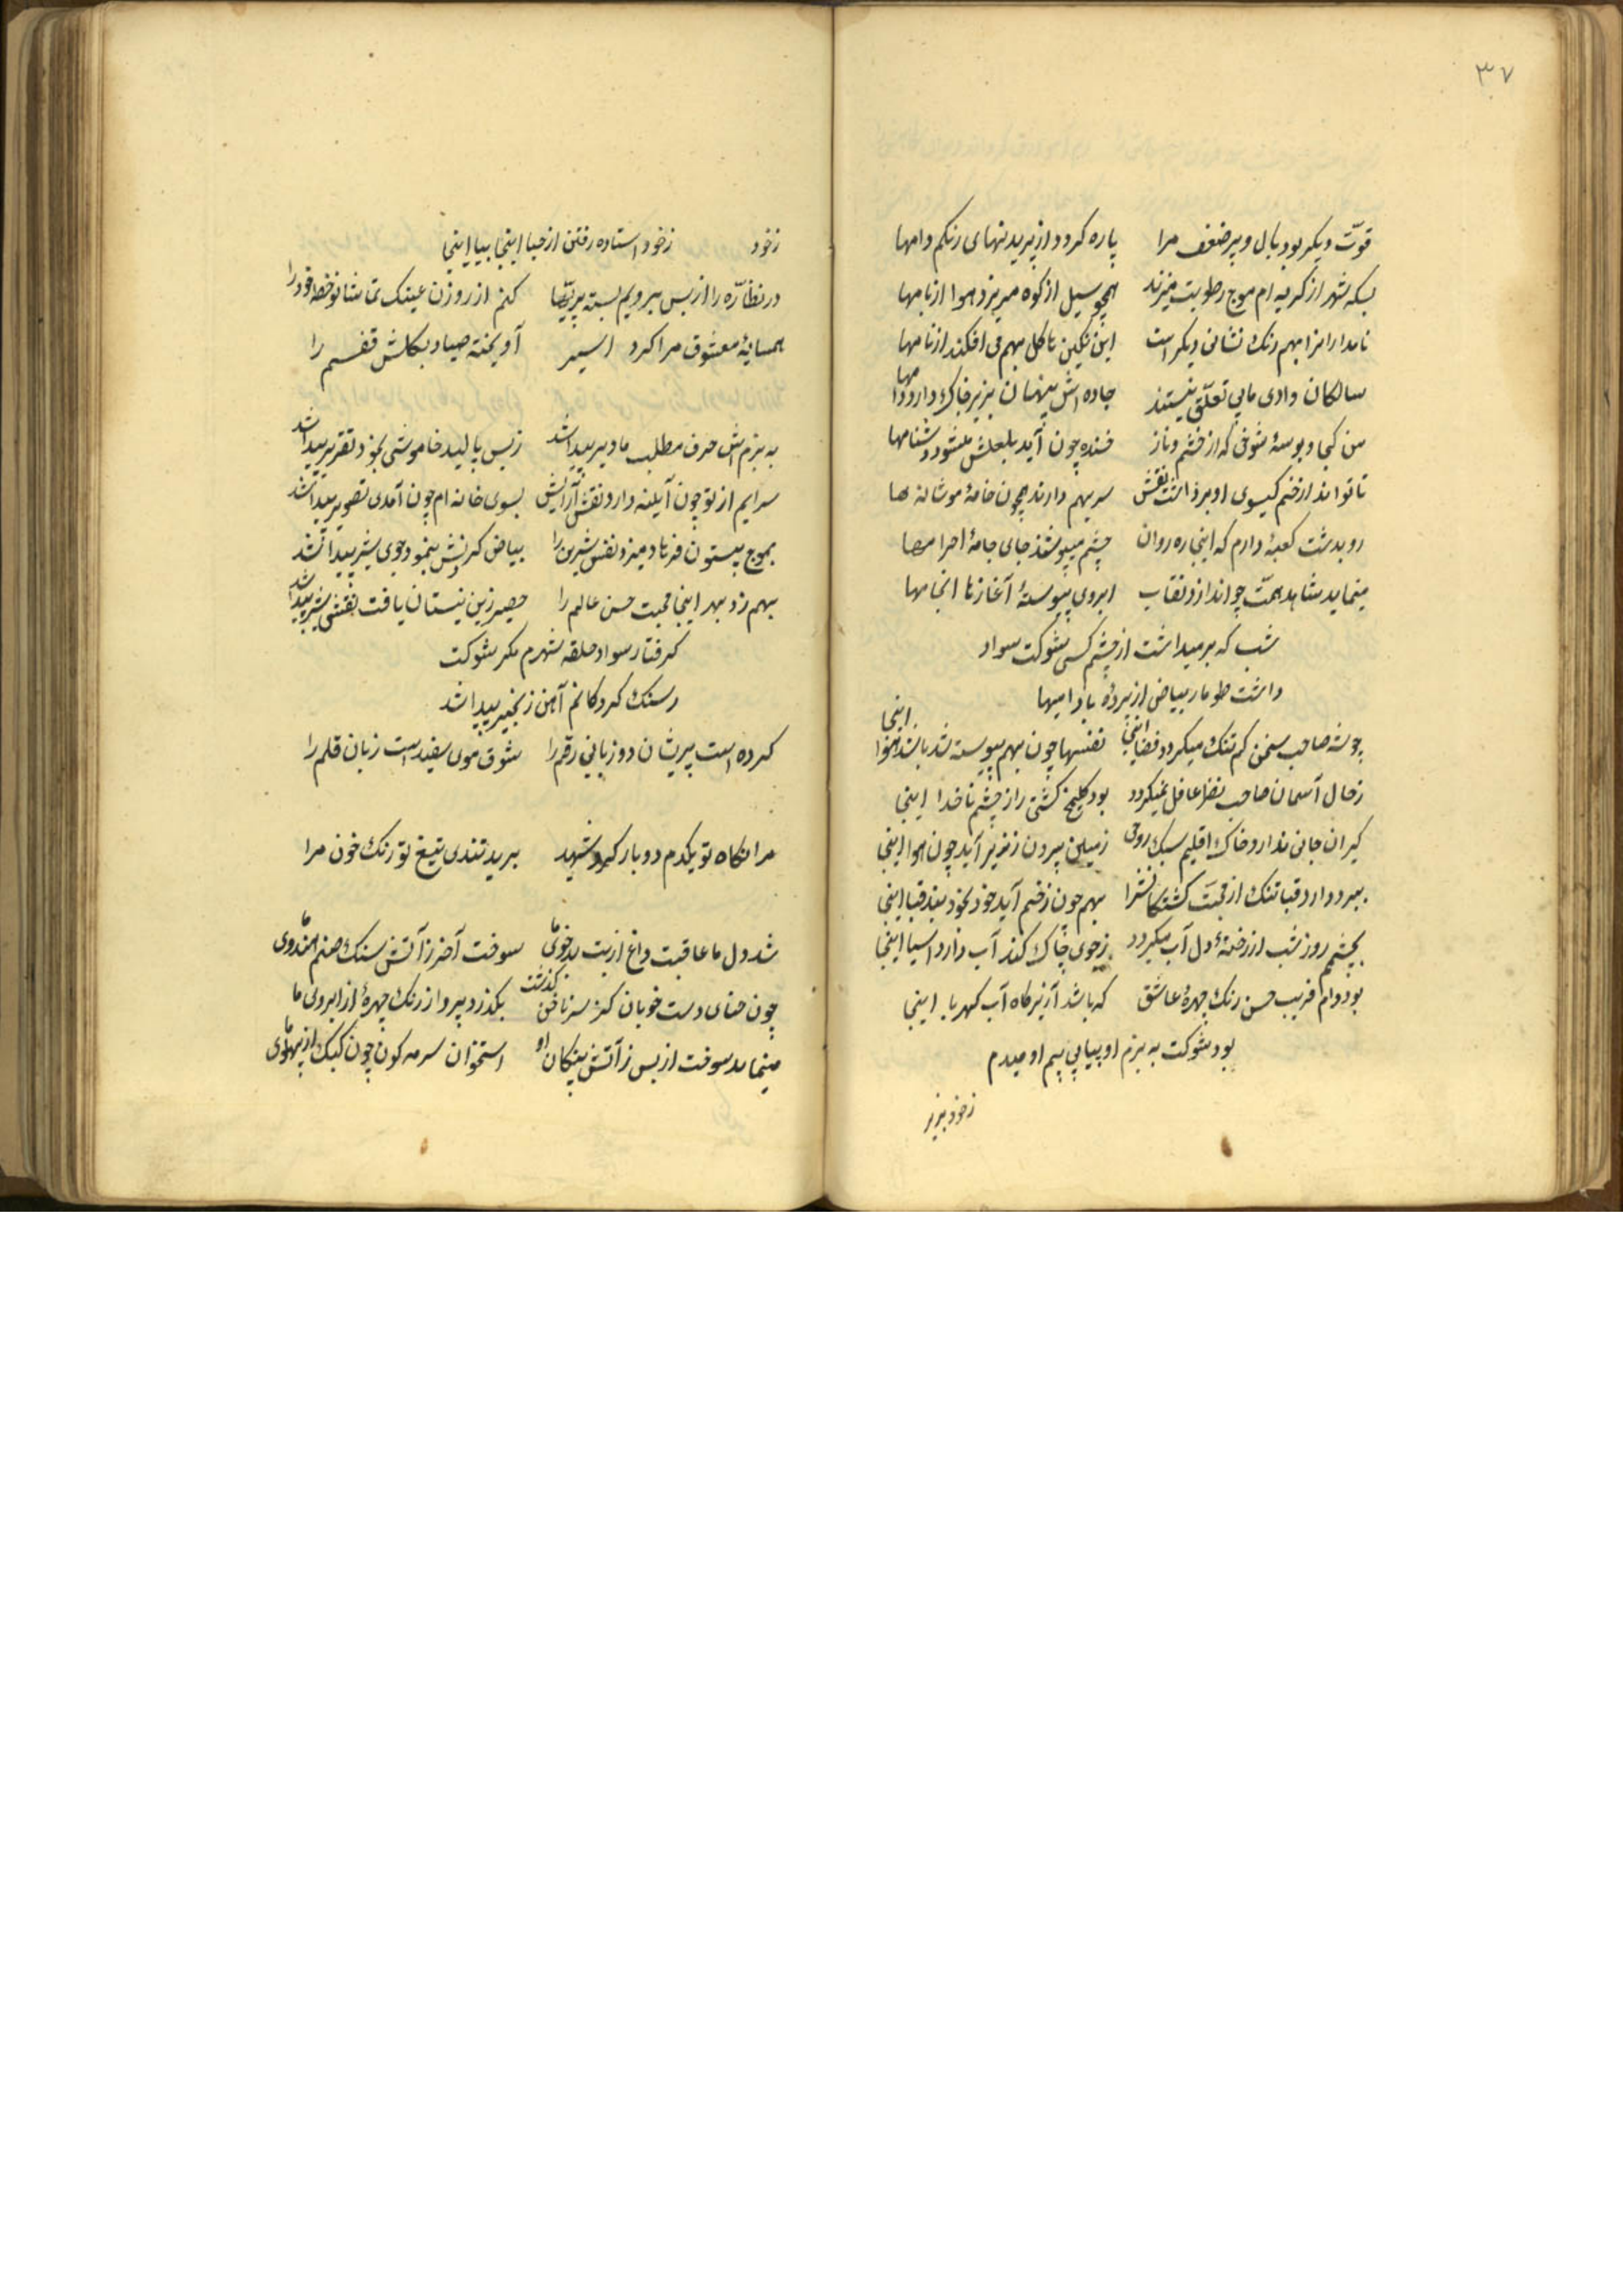 ۳۷
قوّت دیکر بود بال و پر ضعف مرا پاره کردد از پریدنهای رنکم دامها
بسکه شهر از کریه ام موج رطوبت میزند همچو سیل از کوه میریزد هوا از بامها
نامدارانرا بهم رنک نشانی دیکر است این نکین تا کل بهم می افکند از نامها
سالکان وادی مابی تعلّق نیستند جاده اش پنهان بزیر خاک دارد دامها
من کجا و بوسهٔ شوخی که از خشم و ناز خنده چون آید بلعلش میشود دشنامها
تا تواند از خم کیسوی او برداشت نقش سر بهم دارند همچون خامهٔ مو شانه ها
رو بدشت کعبهٔ دارم که اینجا ره روان چشم میپوشند جای جامهٔ احرامها
مینماید شاهد همّت چو اندازد نقاب ابروی پیوستهٔ آغاز تا انجامها
شب که بر میداشت از چشم کسی شوکت سواد
داشت طومار بیاض از پردهٔ بادامها
چو شد صاحب سخن کم تنک میکردد فضا اینجا نفسها چون بهم پیوسته شد باشد هوا اینجا
ز حال آسمان صاحب نظر غافل نمیکردد بود کشتی را ز چشم ناخدا اینجا
کران جانی ندارد خاک اقلیم سبک روحی زمین بیرون ز زیر آید چون هوا اینجا
ببر دارد قبا تنک از محبت کشتکانشرا بهم چون زخم آید خود بخود بند قبا اینجا
بچشمم روز شب از رخنهٔ دل آب میکردد ز جوی چاک کندم آب دارد آسیا اینجا
بود دام فریب حسن رنک چهرهٔ عاشق که باشد آب زیر کاه آب کهربا اینجا
بود شوکت به بزم او پیاپی بیم او میدم
ز خود
ز خود
ز خود استاده رفتن از حیا اینجا بیا اینجا
در نظّاره را از بس برویم بسته کنم از روزن عینک تماشا نو خط خود را
همسایهٔ معشوق مرا کرد اسیر آویخته صیاد بکلش قفسم را
به بزم اش حرف مطلب ما دیر پیدا شد ز بس بالید خاموشی بخود تقریر پیدا شد
سرایم از تو چون آیینه دارد نقش آرایش بسوی خانه ام چون آمدی تصویر پیدا شد
بموج بیستون فرهاد میزد نقش شیرین را بیاض کردنش بنمود جوی شیر پیدا شد
بهم زد بهر اینجا محبت حسن عالم را حصیر زین نیستان یافت نقش شیر پیدا شد
کرفتار سواد حلقه شهرم مکر شوکت
ر سنک کرد کانم آهن زنجیر پیدا شد
کرده است پریشان دو زبانی رقم را شوق موی سفید است زبان قلم را
مرا نکاه تو یکدم دو بار کرد شهید برید تندی تیغ تو رنک خون مرا
شد دل ما عاقبت داغ از بت بد خوی ما سوخت آخر ز آتش سنک صنم هندوی ما
چون حنای دست خوبان کز سر ناخن کذشت بکذرد پرواز رنک چهرهٔ از ابروی ما
مینماید سوخت از بس ز آتش پیکان او استخوان سرمه کون چون کبک از پهلوی ما